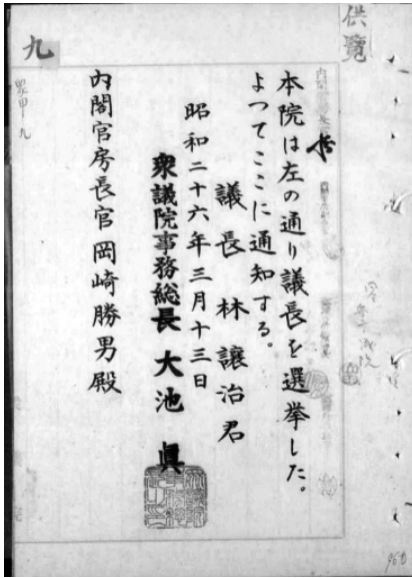 供覧
本院は左の通り議長を選挙した。
よつてここに通知する。
議長 林讓治君
昭和二十六年三月十三日
衆議院事務総長 大池 眞
内閣官房長官 岡崎勝男殿
九